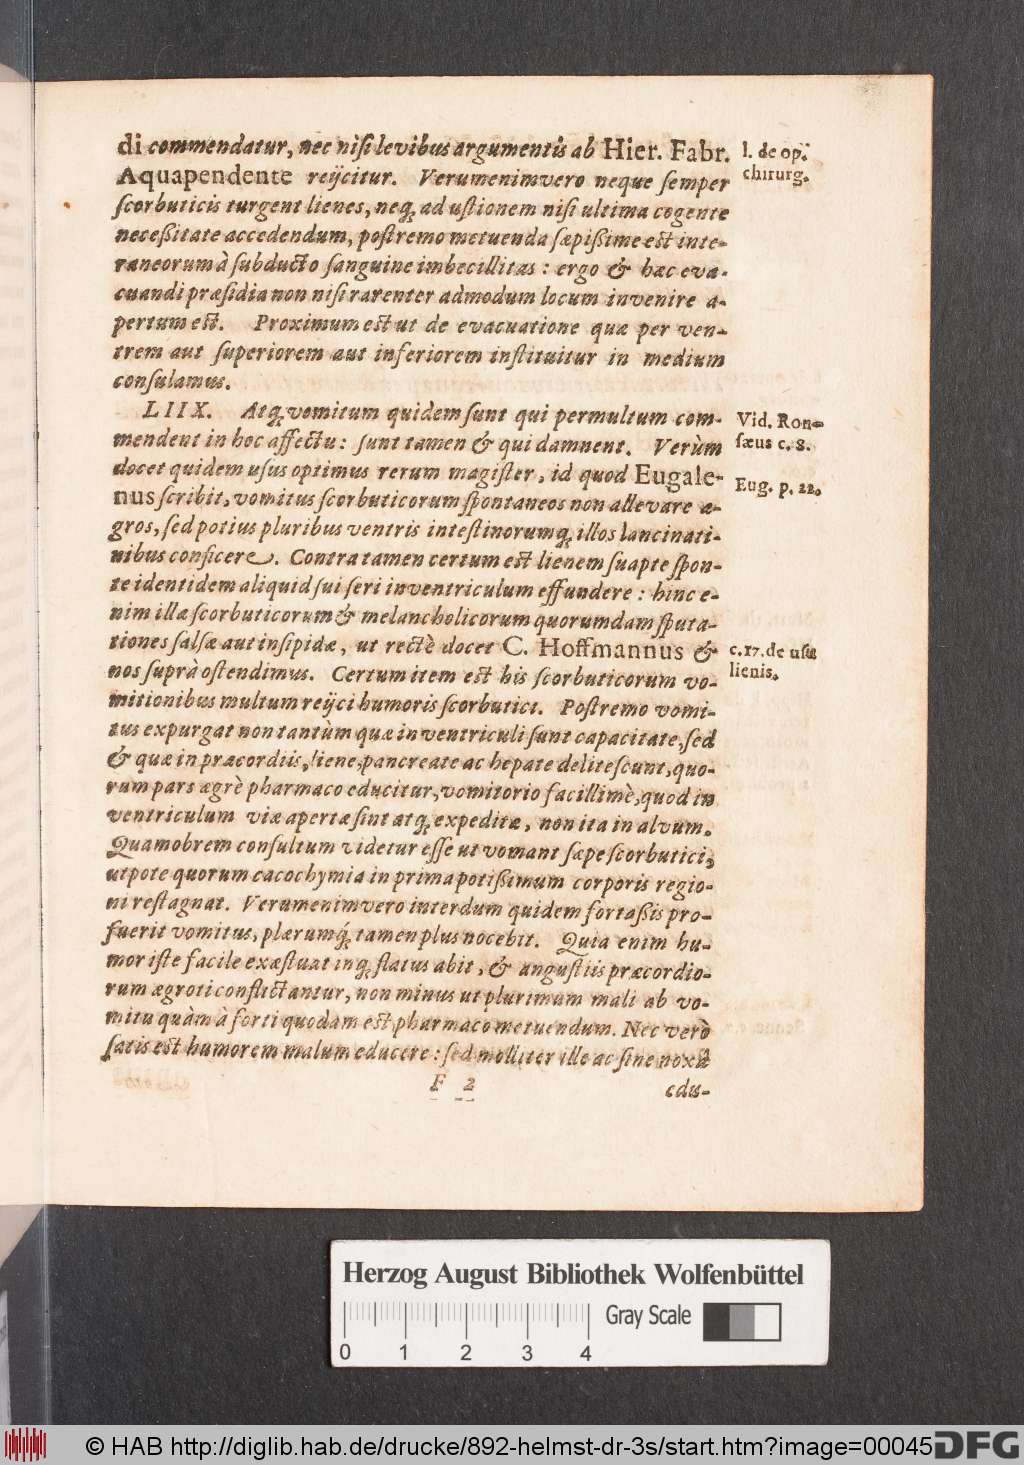 di commendatur, nec nìſi levibus argumentis ab Hier. Fabr.
l. de op.
chirurg.
Aquapendente reijcitur. Verumenimvero neque ſemper
ſcorbuticis turgent lienes, neq; ad uſtionem niſi ultima cogente
neceßitate accedendum, poſtremo metuenda ſæpißime eſt inte-
raneorum à ſubducto ſanguine imbecillitas: ergo & hæc eva-
cuandi præſidia non niſi rarenter admodum locum invenire a-
pertum eſt. Proximum eſt ut de evacuatione quæ per ven-
trem aut ſuperiorem aut inferiorem inſtituitur in medium
conſulamus.
LIIX. Atq; vomitum quidem ſunt qui permultum com-
Vid. Ron-
ſæus c. 8.
mendent in hoc affectu: ſunt tamen & qui damnent. Verùm
docet quidem uſus optimus rerum magiſter, id quod Eugale-
Eug. p. 22.
nus ſcribit, vomitus ſcorbuticorum ſpontaneos non allevare æ-
gros, ſed potius pluribus ventris inteſtinorumq; illos lancinati-
nibus conficere. Contra tamen certum eſt lienem ſuapte ſpon-
te identidem aliquid ſui ſeri in ventriculum effundere: hinc e-
nim illæ ſcorbuticorum & melancholicorum quorumdam ſputa-
tiones ſalſæ aut inſipidæ, ut rectè docet C. Hoffmannus &
c. 17. de uſu
lienis.
nos ſuprà oſtendimus. Certum item eſt his ſcorbuticorum vo-
mitionibus multum reijci humoris ſcorbutici. Poſtremo vomi-
tus expurgat non tantùm quæ in ventriculi ſunt capacitate, ſed
& quæ in præcordiis, liene, pancreate ac hepate deliteſcunt, quo-
rum pars ægrè pharmaco educitur, vomitorio facillimè, quod in
ventriculum viæ apertæ ſint atq; expeditæ, non ita in alvum.
Quamobrem conſultum videtur eſſe ut vomant ſæpe ſcorbutici,
utpote quorum cacochymia in prima potißimum corporis regio-
ni reſtagnat. Verumenimvero interdum quidem fortaßis pro-
fuerit vomitus, plærumq; tamen plus nocebit. Quia enim hu-
mor iſte facile exæſtuat inq; flatus abit, & anguſtiis præcordio-
rum ægroti conflictantur, non minus ut plurimum mali ab vo-
mitu quàm à forti quodam eſt pharmaco metuendum. Nec verò
ſatis eſt humorem malum educere: ſed molliter ille ac ſine noxâ
F 2
edu-
Herzog August Bibliothek Wolfenbüttel
Gray Scale
0 1 2 3 4
© HAB http://diglib.hab.de/drucke/892-helmst-dr-3s/start.htm?image=00045
DFG